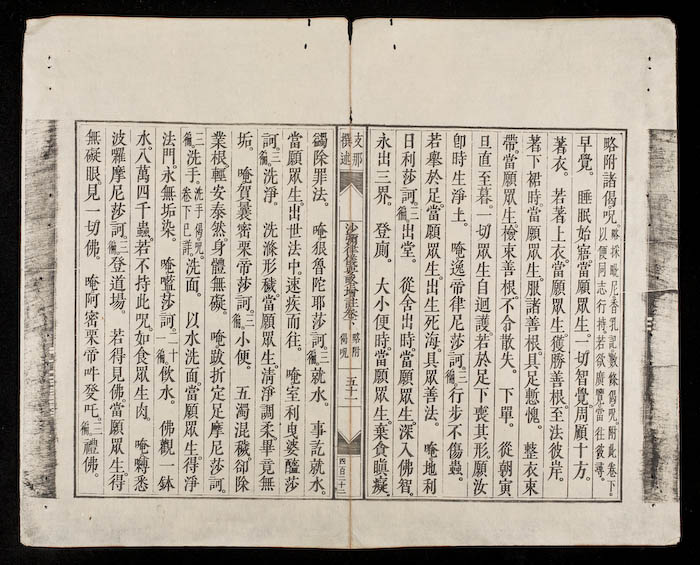 略附諸偈呪。略採毗尼香乳記數條偈呪。附此卷下。以便同志行持。若欲廣覽。當往彼尋。
早覺。 睡眠始寤。當願眾生。一切智覺。周顧十方。
著衣。 若著上衣。當願眾生。獲勝善根。至法彼岸。
著下裙時。當願眾生。服諸善根。具足慙愧。 整衣束
帶。當願眾生。檢束善根。不令散失。 下單。 從朝寅
旦直至暮。一切眾生自迴護。若於足下喪其形。願汝
卽時生淨土。 唵逸帝律尼莎訶。三徧 行步不傷蟲。
若舉於足。當願眾生。出生死海。具眾善法。 唵地利
日利莎訶。三徧 出堂。 從舍出時。當願眾生。深入佛智。
永出三界。 登廁。 大小便時。當願眾生。棄貪瞋癡。
支那撰述 沙彌律儀要略增註卷下 略附偈呪 五十二 四百二十二
蠲除罪法。 唵狠魯陀耶莎訶。三徧 就水。 事訖就水。
當願眾生。出世法中。速疾而往。 唵室利曳婆醯莎
訶。三徧 洗淨。 洗滌形穢。當願眾生。清淨調柔。畢竟無
垢。 唵賀曩密栗帝莎訶。三徧 小便。 五濁混穢。卻除
業根。輕安泰然。身體無礙。 唵跋折定足摩尼莎訶。
三徧 洗手。洗手偈呪。卷下巳詳。 洗面。 以水洗面。當願眾生。得淨
法門。永無垢染。 唵㘕莎訶。二十一徧 飲水。 佛觀一鉢
水。八萬四千蟲。若不持此呪。如食眾生肉。 唵嚩悉
波囉摩尼莎訶。三徧 登道場。 若得見佛。當願眾生。得
無礙眼。見一切佛。 唵阿密栗帝吽發吒。三徧 禮佛。